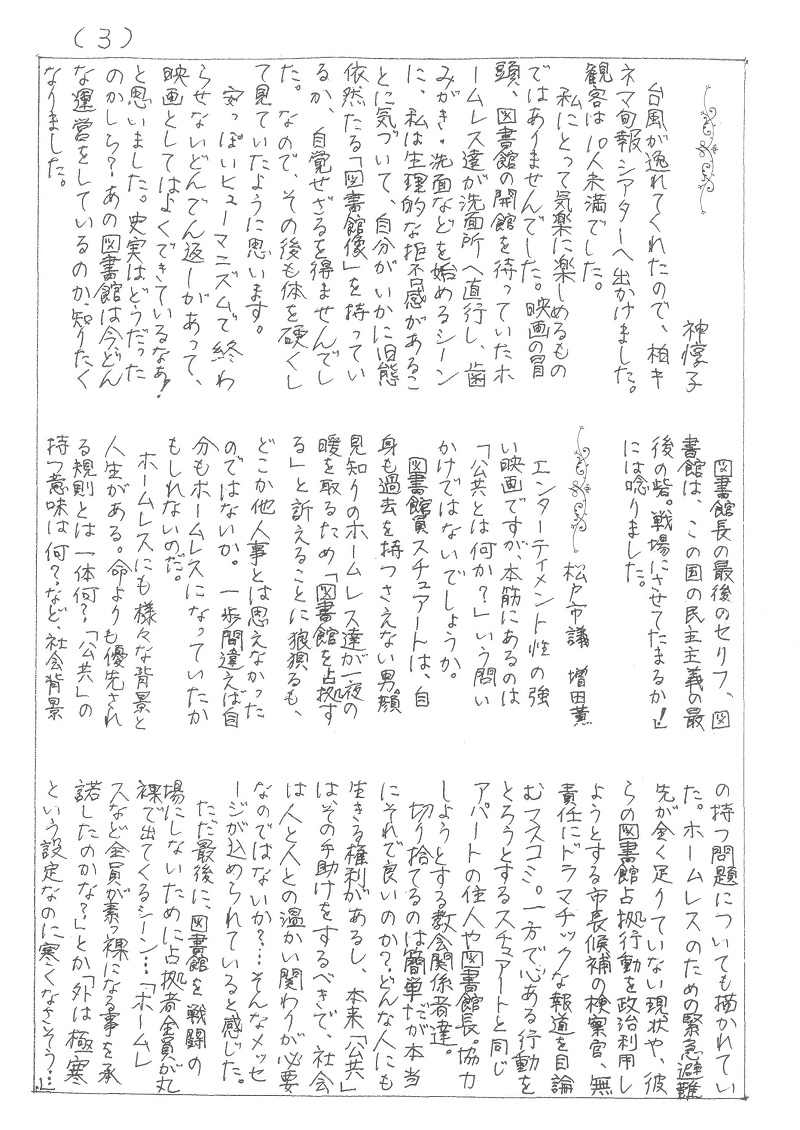 (3)
神惇子
台風が逸れてくれたので、柏キ
ネマ旬報シアターへ出かけました。
観客は10人未満でした。
私にとって気楽に楽しめるもの
ではありませんでした。映画の冒
頭、図書館の開館を待っていたホ
ームレス達が洗面所へ直行し、歯
みがき・洗面などを始めるシーン
に、私は生理的な拒否感があるこ
とに気づいて、自分がいかに旧態
依然たる「図書館像」を持ってい
るか、自覚せざるを得ませんでし
た。なので、その後も体を硬くし
て見ていたように思います。
安っぽいヒューマニズムで終わ
らせないどんでん返しがあって、
映画としてはよくできているなあ!
と思いました。史実はどうだった
のかしら?あの図書館は今どん
な運営をしているのか、知りたく
なりました。
図書館長の最後のセリフ、図
書館は、この国の民主主義の最
後の砦。戦場にさせてたまるか!」
には唸りました。
松戸市議 増田薫
エンターティメント性の強
い映画ですが、本筋にあるのは
「公共とは何か?」いう問い
かけではないでしょうか。
図書館員スチュアートは、自
身も過去を持つさえない男。顔
見知りのホームレス達が一夜の
暖を取るため「図書館を占拠す
る」と訴えることに狼狽るも、
どこか他人事とは思えなかった
のではないか。一歩間違えば自
分もホームレスになっていたか
もしれないのだ。
ホームレスにも様々な背景と
人生がある。命よりも優先され
る規則とは一体何?「公共」の
持つ意味は何?など、社会背景
の持つ問題についても描かれてい
た。ホームレスのための緊急避難
先が全く足りていない現状や、彼
らの図書館占拠行動を政治利用し
ようとする市長候補の検察官、無
責任にドラマチックな報道を目論
むマスコミ。一方で心ある行動を
とろうとするスチュアートと同じ
アパートの住人や図書館長。協力
しようとする教会関係者達。
切り捨てるのは簡単だが本当
にそれで良いのか?どんな人にも
生きる権利があるし、本来「公共」
はその手助けをするべきで、社会
は人と人との温かい関わりが必要
なのではないか?…そんなメッセ
ージが込められていると感じた。
ただ最後に、図書館を戦闘の
場にしないために占拠者全員が丸
裸で出てくるシーン…「ホームレ
スなど全員が素っ裸になる事を承
諾したのかな?」とか「外は極寒
という設定なのに寒くなさそう…」